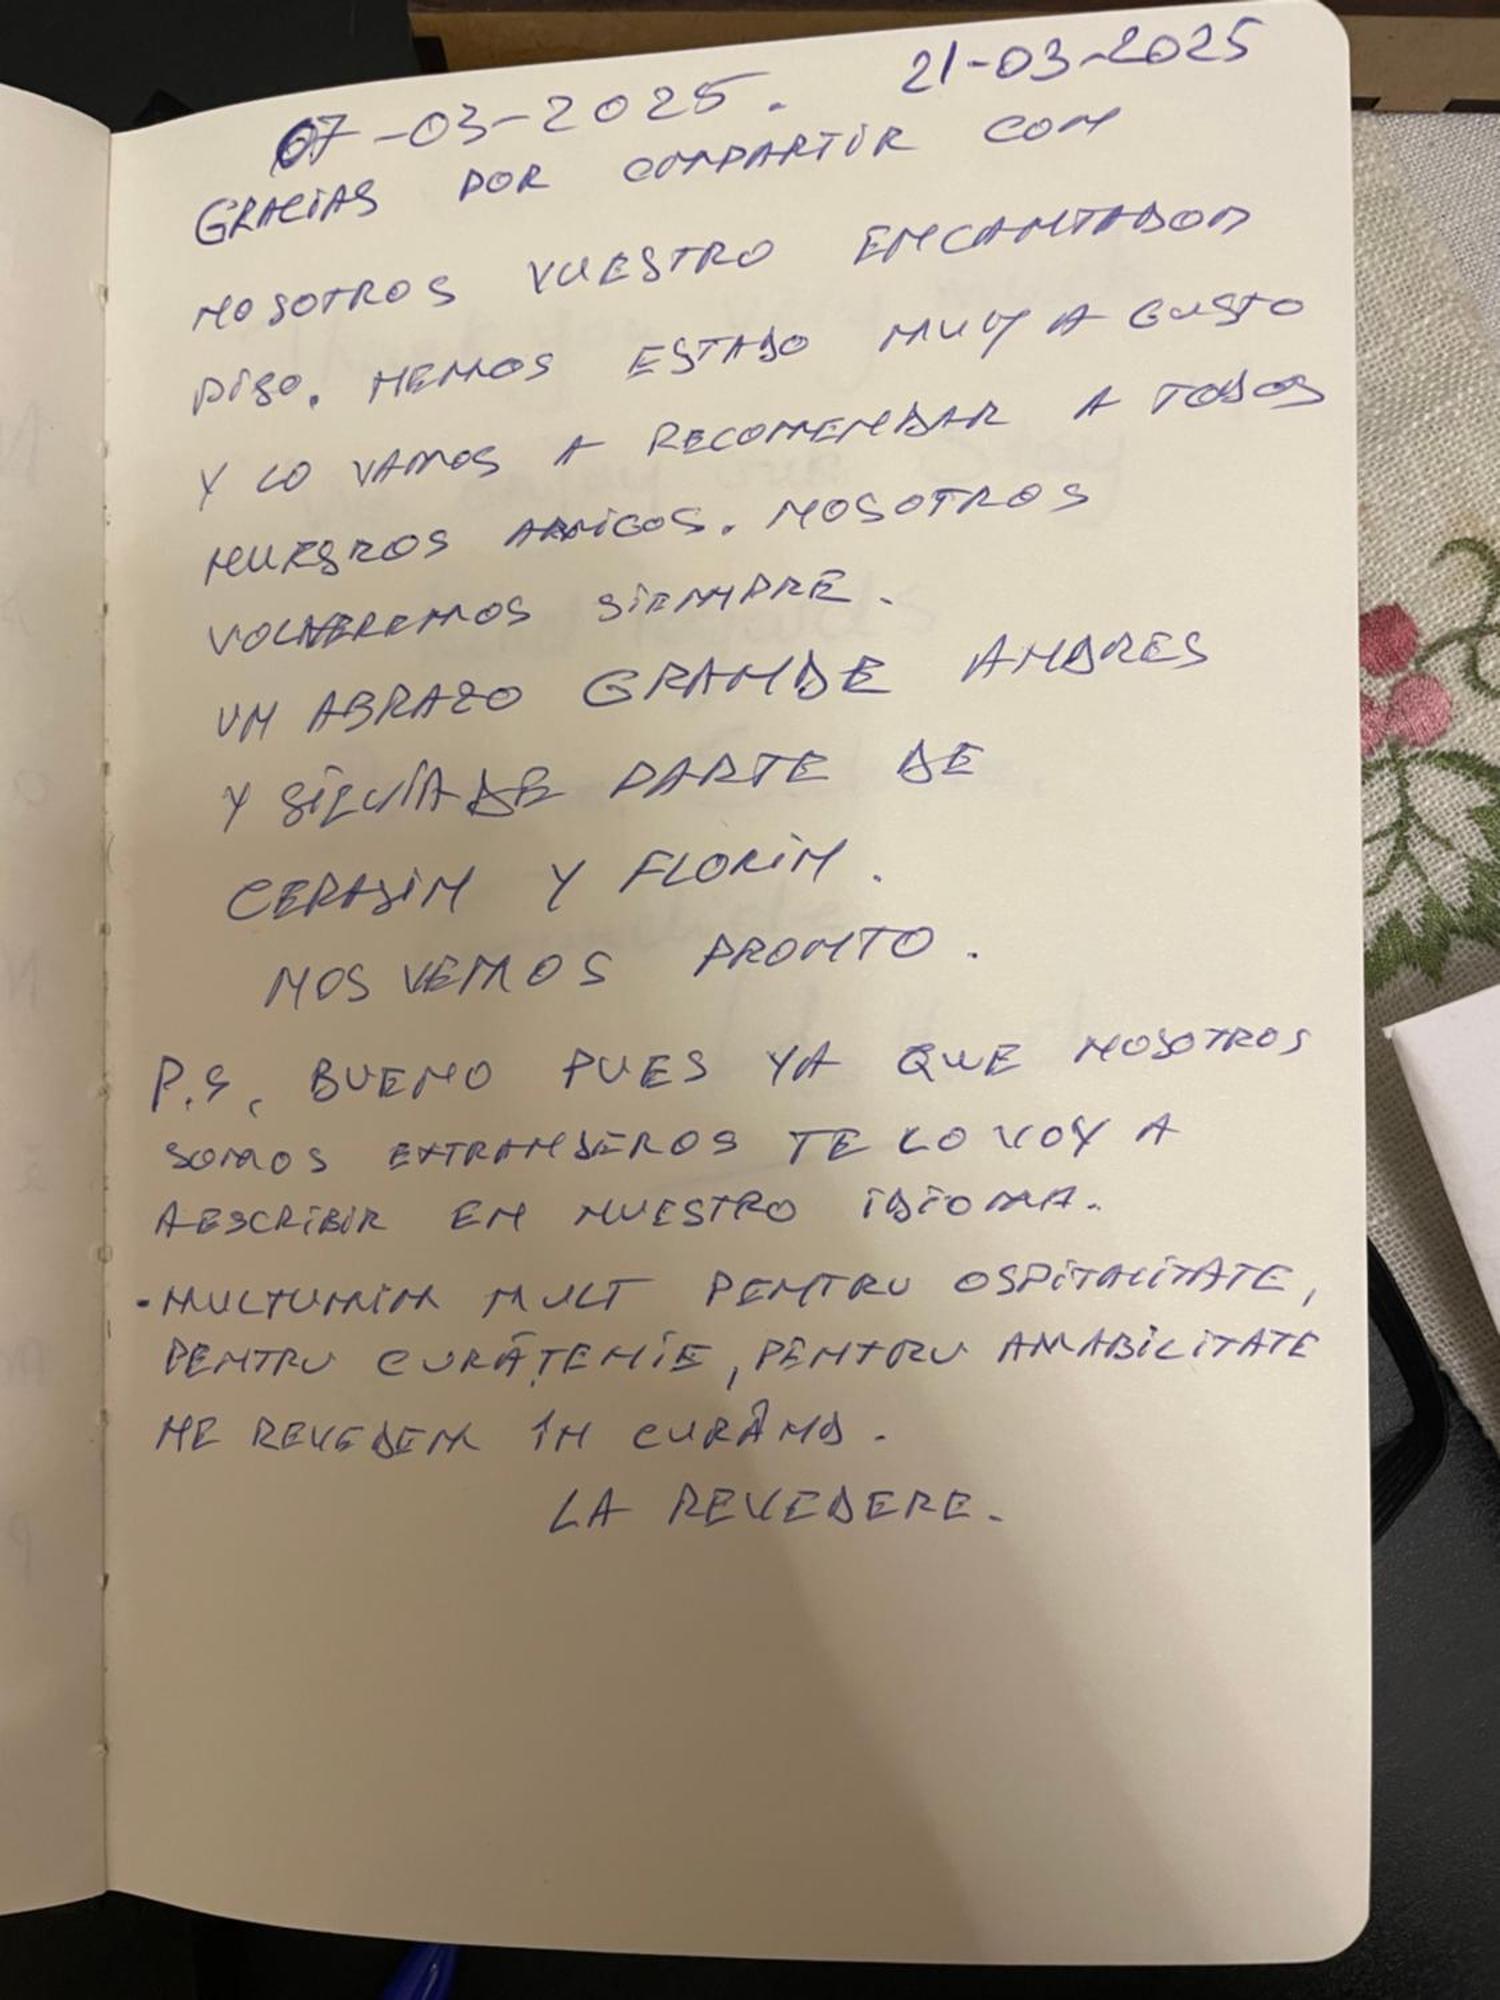 07-03-2025. 21-03-2025
GRACIAS POR COMPARTIR CON
NOSOTROS VUESTRO ENCANTADOR
PISO. HEMOS ESTADO MUY A GUSTO
Y LO VAMOS A RECOMENDAR A TODOS
NUESROS AMIGOS. NOSOTROS
VOLVEREMOS SIEMPRE.
UN ABRAZO GRANDE ANDRES
Y SILVIA DE PARTE DE
CERASIM Y FLORIN.
NOS VEMOS PRONTO.
P.S. BUENO PUES YA QUE NOSOTROS
SOMOS EXTRANJEROS TE LO VOY A
AESCRIBIR EN NUESTRO IDIOMA.
-MULTUMIM MULT PENTRU OSPITALITATE,
PENTRU CURĂȚENIE, PENTRU AMABILITATE
NE REVEDEM ÎN CURÂND.
LA REVEDERE.